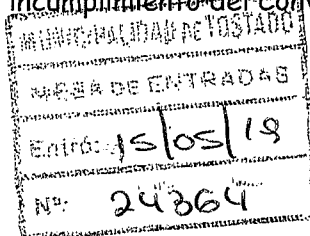 incumplimiento del conv
MUNICIPALIDAD DE TOSTADO
MESA DE ENTRADAS
Entró: 15/05/19
Nº: 24364